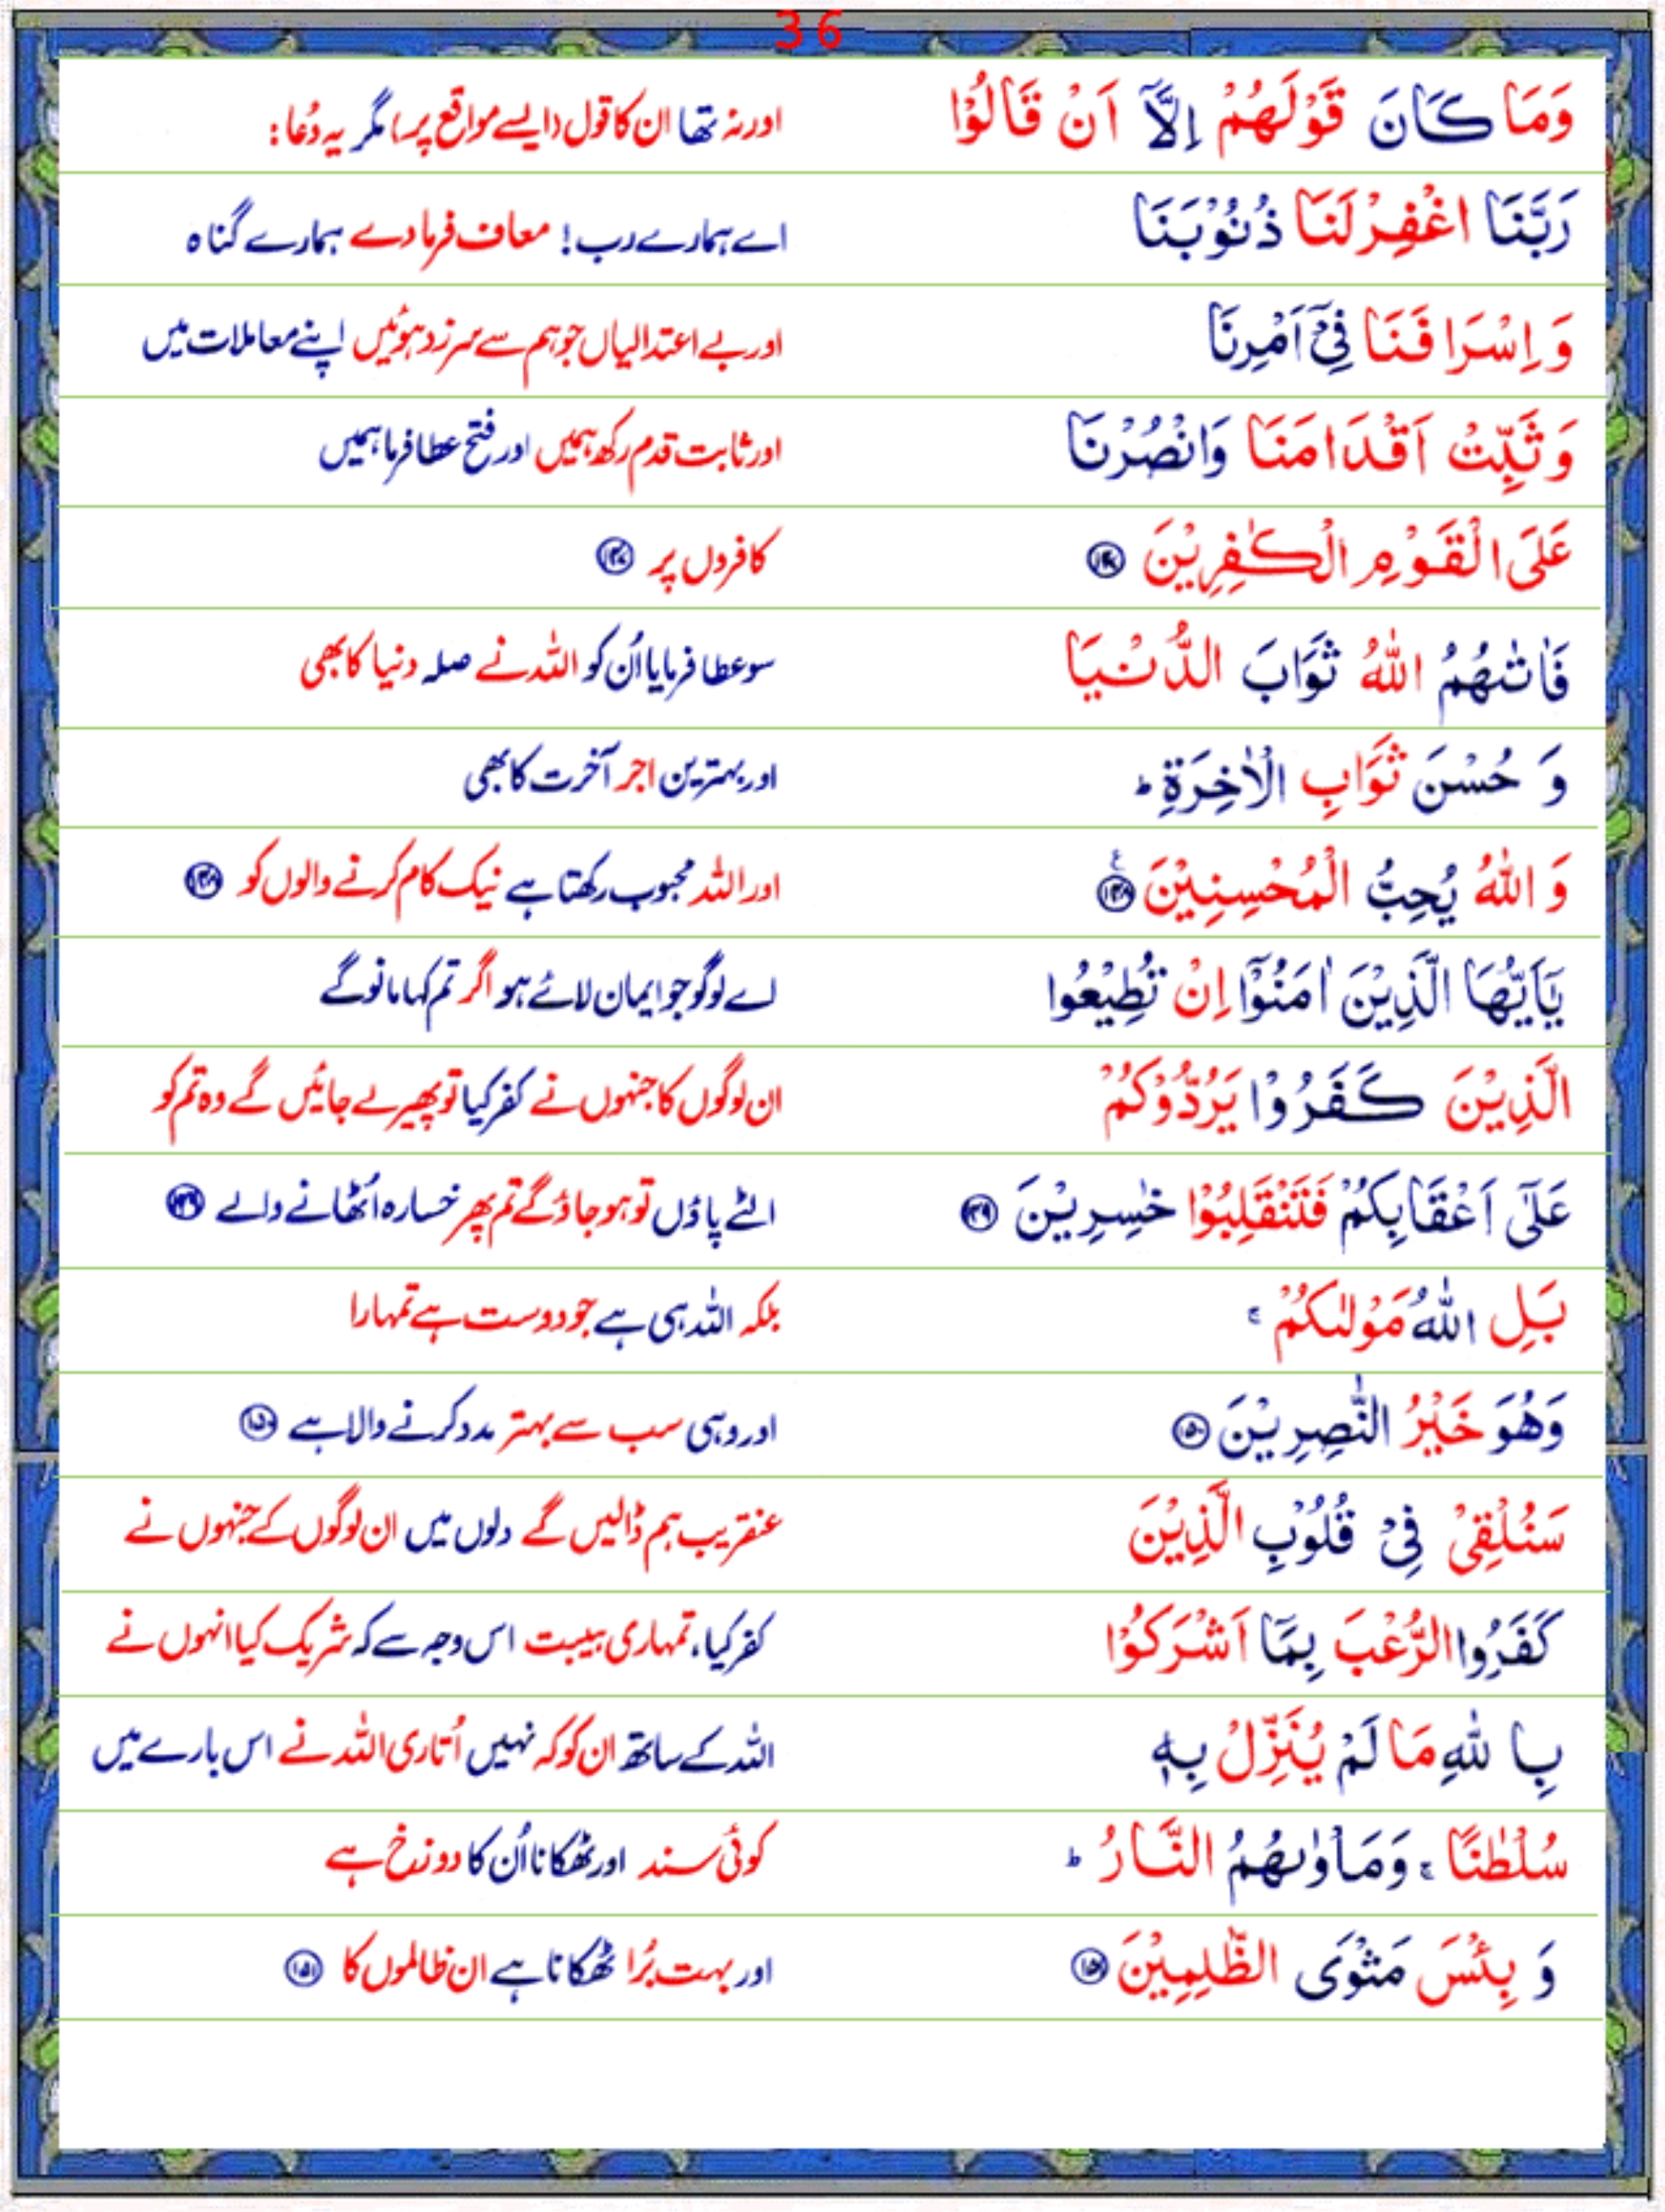 36
وَمَا كَانَ قَوْلَهُمْ اِلَّآ اَنْ قَالُوْا اورنہ تھا ان کا قول (ایسے مواقع پر) مگر یہ دُعا:
رَبَّنَا اغْفِرْلَنَا ذُنُوْبَنَا اے ہمارے رب! معاف فرمادے ہمارے گناہ
وَاِسْرَافَنَا فِیْۤ اَمْرِنَا اور بے اعتدالیاں جو ہم سے سرزد ہوئیں اپنے معاملات میں
وَثَبِّتْ اَقْدَامَنَا وَانْصُرْنَا اور ثابت قدم رکھ ہمیں اور فتح عطا فرما ہمیں
عَلَی الْقَوْمِ الْکٰفِرِیْنَ ﴿۱۴۷﴾ کافروں پر ﴿۱۴۷﴾
فَاٰتٰىهُمُ اللّٰهُ ثَوَابَ الدُّنْیَا سو عطا فرمایا اُن کو اللہ نے صلہ دنیا کا بھی
وَ حُسْنَ ثَوَابِ الْاٰخِرَةِ ؕ اور بہترین اجر آخرت کا بھی
وَ اللّٰهُ یُحِبُّ الْمُحْسِنِیْنَ ﴿۱۴۸﴾ ع اور اللہ محبوب رکھتا ہے نیک کام کرنے والوں کو ﴿۱۴۸﴾
یٰۤاَیُّهَا الَّذِیْنَ اٰمَنُوْۤا اِنْ تُطِیْعُوا اے لوگو جو ایمان لائے ہو اگر تم کہا مانو گے
الَّذِیْنَ کَفَرُوْا یَرُدُّوْکُمْ ان لوگوں کا جنہوں نے کفر کیا تو پھیر لے جائیں گے وہ تم کو
عَلٰۤی اَعْقَابِکُمْ فَتَنْقَلِبُوْا خٰسِرِیْنَ ﴿۱۴۹﴾ الٹے پاؤں تو ہو جاؤ گے تم پھر خسارہ اُٹھانے والے ﴿۱۴۹﴾
بَلِ اللّٰهُ مَوْلٰىکُمْ ۚ بلکہ اللہ ہی ہے جو دوست ہے تمہارا
وَهُوَ خَیْرُ النّٰصِرِیْنَ ﴿۱۵۰﴾ اور وہی سب سے بہتر مدد کرنے والا ہے ﴿۱۵۰﴾
سَنُلْقِیْ فِیْ قُلُوْبِ الَّذِیْنَ عنقریب ہم ڈالیں گے دلوں میں ان لوگوں کے جنہوں نے
کَفَرُوا الرُّعْبَ بِمَاۤ اَشْرَکُوْا کفر کیا، تمہاری ہیبت اس وجہ سے کہ شریک کیا انہوں نے
بِاللّٰهِ مَا لَمْ یُنَزِّلْ بِهٖ اللہ کے ساتھ ان کو کہ نہیں اُتاری اللہ نے اس بارے میں
سُلْطٰنًا ۚ وَمَاْوٰىهُمُ النَّارُ ؕ کوئی سند اور ٹھکانا اُن کا دوزخ ہے
وَ بِئْسَ مَثْوَی الظّٰلِمِیْنَ ﴿۱۵۱﴾ اور بہت بُرا ٹھکانا ہے ان ظالموں کا ﴿۱۵۱﴾